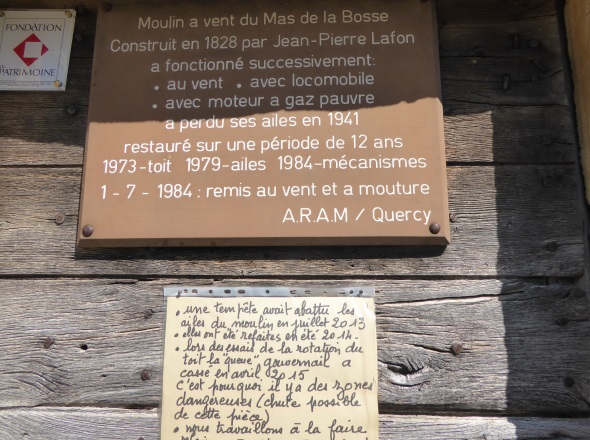 FONDATION
DU
PATRIMOINE
Moulin a vent du Mas de la Bosse
Construit en 1828 par Jean-Pierre Lafon
a fonctionné successivement:
• au vent • avec locomobile
• avec moteur a gaz pauvre
a perdu ses ailes en 1941
restauré sur une période de 12 ans
1973-toit 1979-ailes 1984-mécanismes
1 - 7 - 1984 : remis au vent et a mouture
A.R.A.M / Quercy
• une tempête avait abattu les
ailes du moulin en juillet 2013
• elles ont été refaites en été 2014.
• lors des essais de la rotation du
toit la "queue" gouvernail a
cassé en avril 2015
C'est pourquoi il y a des zones
dangereuses (chute possible
de cette pièce)
• nous travaillons à la faire